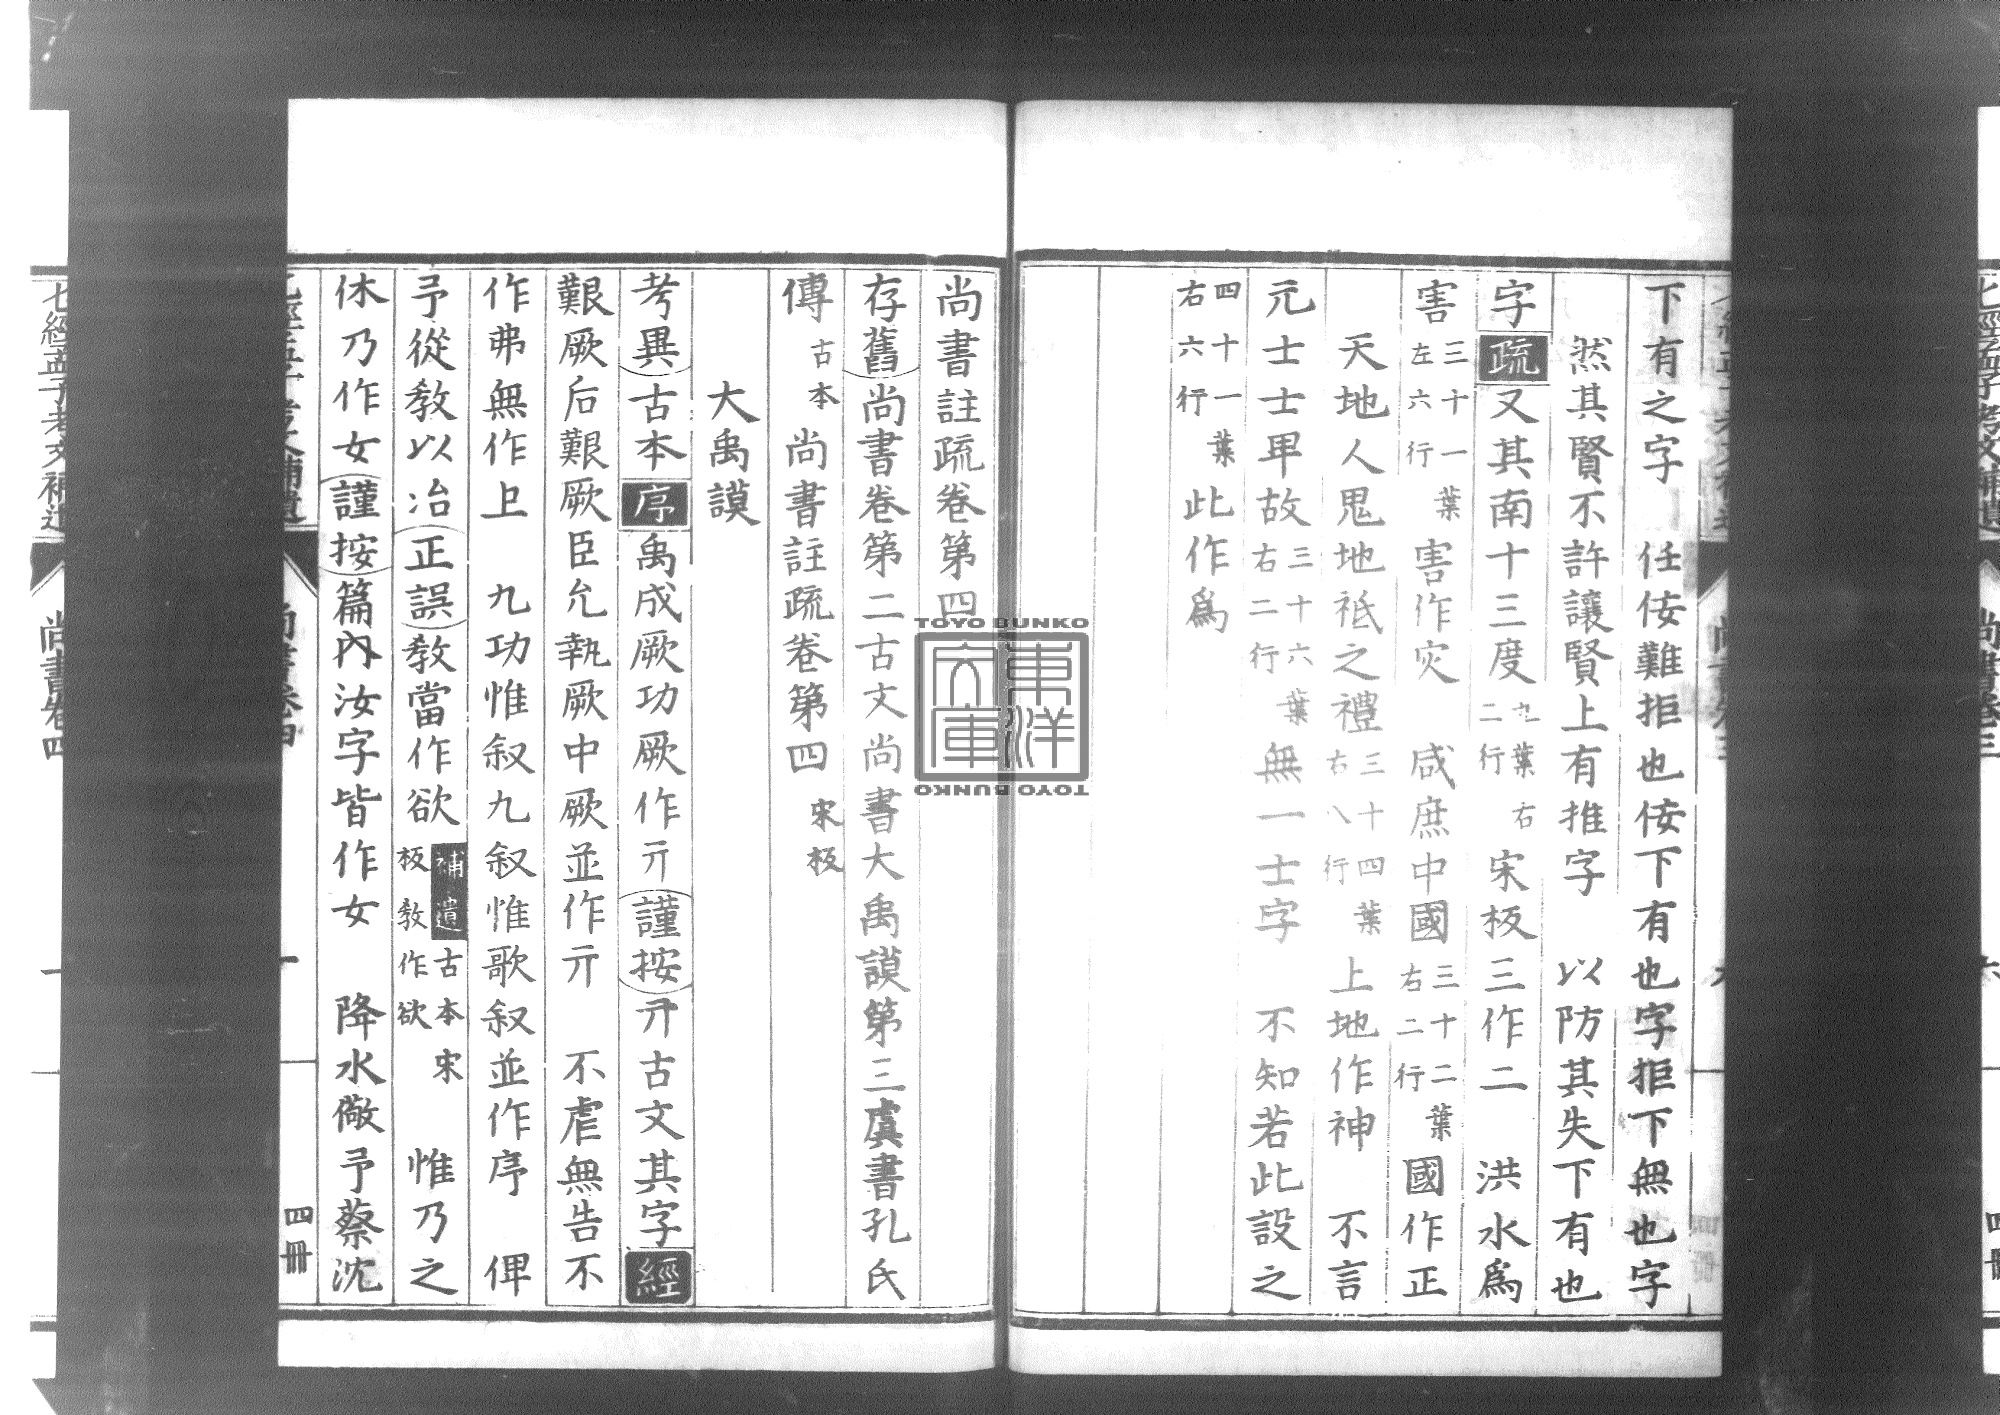 下有之字　任佞難拒也佞下有也字拒下無也字
然其賢不許讓賢上有推字　以防其失下有也
字疏又其南十三度九葉右二行　宋板三作二　洪水爲
害三十一葉左六行　害作灾　咸庶中國三十二葉右二行　國作正
天地人鬼地祗之禮三十四葉右八行　上地作神　不言
元士士卑故三十六葉右二行　無一士字　不知若此設之
四十一葉右六行　此作爲
尚書註疏卷第四
存舊尚書卷第二古文尚書大禹謨第三虞書孔氏
傳古本　尚書註疏卷第四　宋板
大禹謨
考異古本序禹成厥功厥作亓謹按亓古文其字經
艱厥后艱厥臣允執厥中厥並作亓　不虐無告不
作弗無作亡　九功惟叙九叙惟歌叙並作序　俾
予從教以治正誤教當作欲補遺古本宋板教作欲　惟乃之
休乃作女謹按篇內汝字皆作女　降水儆予蔡沈
尚書卷四
四冊
七經孟子考文補遺
尚書卷四
一
TOYO BUNKO
東洋文庫
TOYO BUNKO